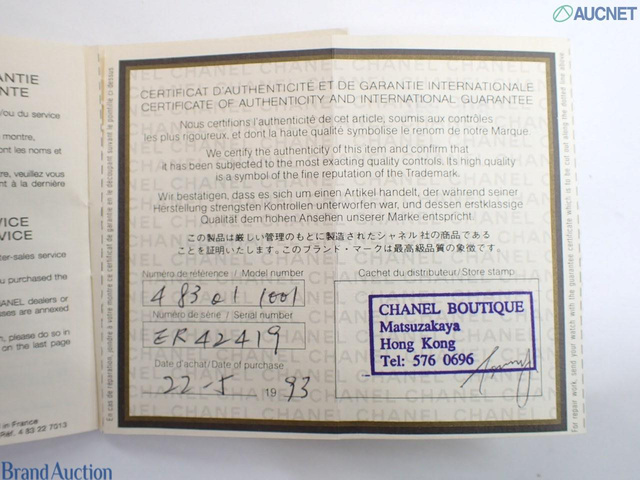 AUCNET
ANTIE
NTE
/ou du service
montre,
ont les noms et
, veuillez vous
nt à la dernière
VICE
VICE
ter-sales service
u purchased the
ANEL dealers or
sses are annexed
n, please do so in
on the last page
in France
Réf. 4 83 22 7013
CERTIFICAT D'AUTHENTICITÉ ET DE GARANTIE INTERNATIONALE
CERTIFICATE OF AUTHENTICITY AND INTERNATIONAL GUARANTEE
Nous certifions l'authenticité de cet article, soumis aux contrôles
les plus rigoureux, et dont la haute qualité symbolise le renom de notre Marque.
We certify the authenticity of this item and confirm that
it has been subjected to the most exacting quality controls. Its high quality
is a symbol of the fine reputation of the Trademark.
Wir bestätigen, dass es sich um einen Artikel handelt, der während seiner
Herstellung strengsten Kontrollen unterworfen war, und dessen erstklassige
Qualität dem hohen Ansehen unserer Marke entspricht.
この製品は厳しい管理のもとに製造されたシャネル社の商品である
ことを証明いたします。このブランド・マークは最高級品質の象徴です。
Numéro de référence / Model number
4 83 01 1001
Numéro de série / Serial number
ER 42419
Date d'achat / Date of purchase
22-5 1993
Cachet du distributeur/Store stamp
CHANEL BOUTIQUE
Matsuzakaya
Hong Kong
Tel: 576 0696
For repair work, send your watch with the guarantee certificate which is to be cut out along the dotted line above.
En cas de réparation, joindre à votre montre ce certificat de garantie en le découpant suivant le pointillé ci-dessus.
Brand Auction